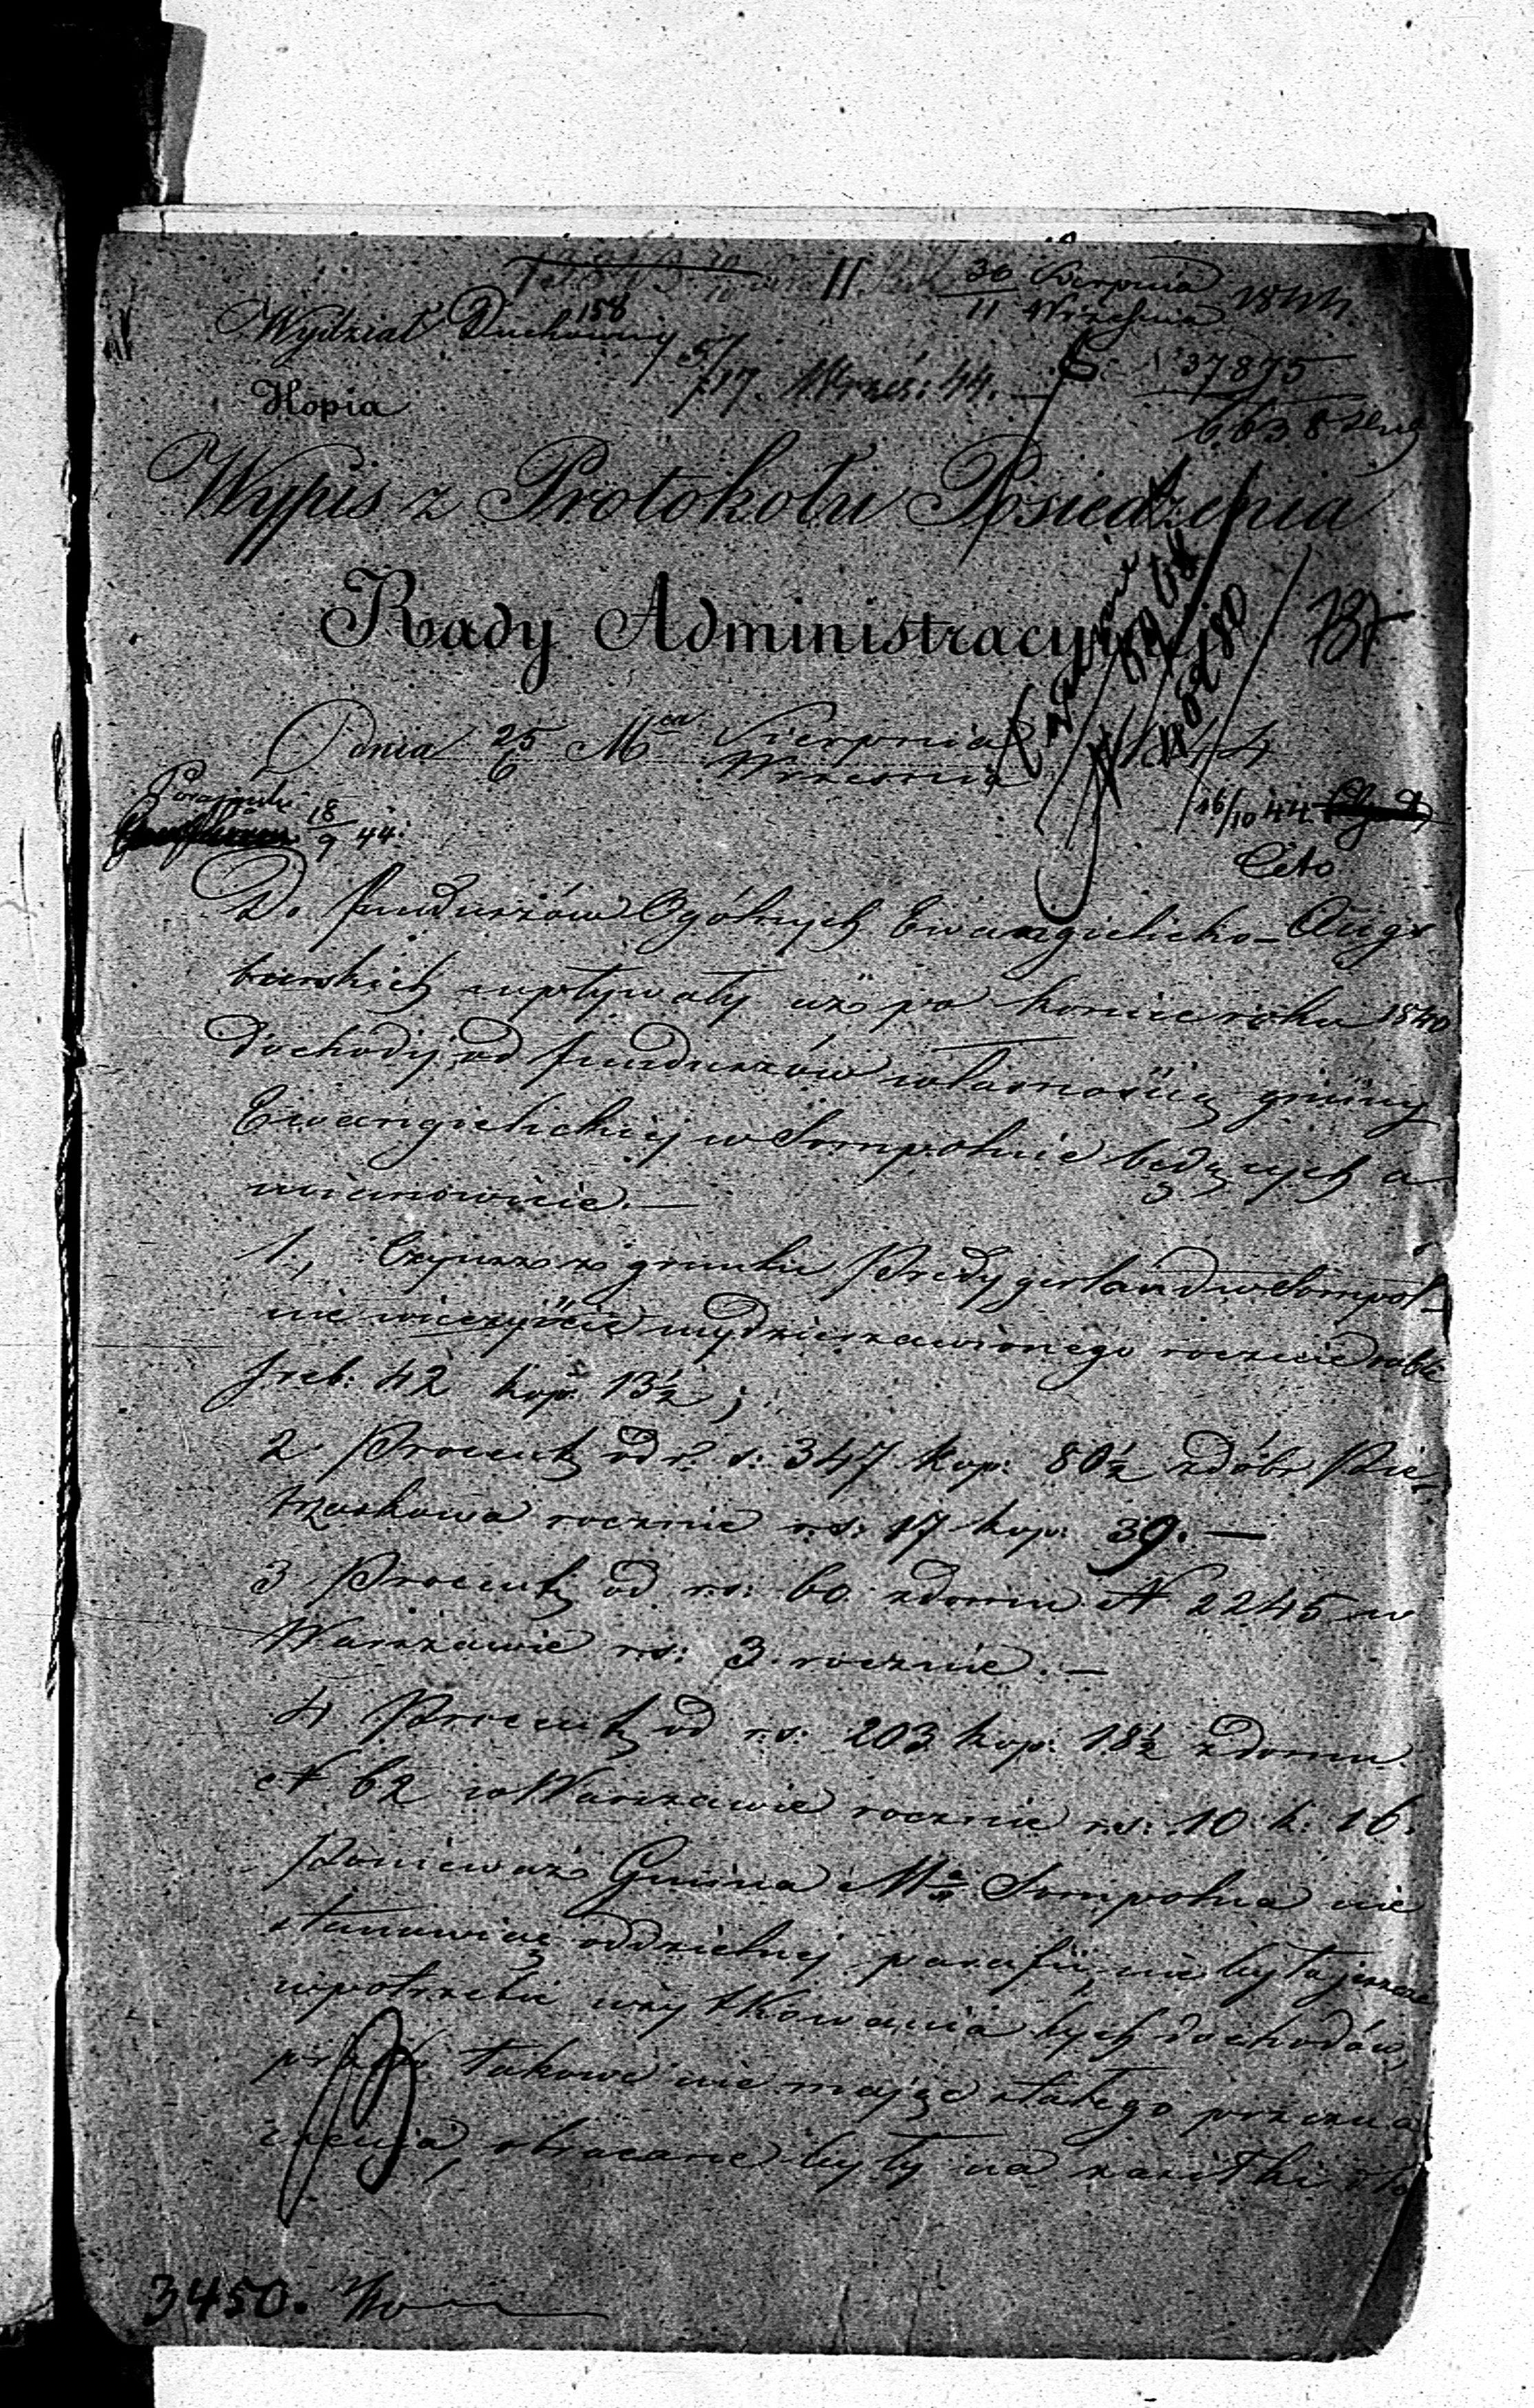 30 Sierpnia
11 Września 1844
158
Wydział Duchowny
5/17. Wrześ: 44.
37875
6638
Kopia
Wypis z Protokołu Posiedzenia
Rady Administracyjnej
137
dnia 25/6 Mca Sierpnia/Września 1844
18/9 44.
16/10 44
Do funduszów Ogólnych Ewangielicko-Augs
burskich wpływały aż po koniec roku 1840
dochody od funduszów własnością gminy
Ewangielickiej w Sompolnie będących a
mianowicie. —
1, Czynsz z gruntu Predygerland w Sompol-
nie wieczyście wydzierzawionego rocznie rubli
sreb: 42 kop: 13½;
2 Procent od r. s: 347 kop: 80½ z dóbr Pie-
trzaskowa rocznie r.s: 17 kop: 39. —
3 Procent od rs: 60 z domu N 2245 w
Warszawie rs: 3 rocznie. —
4 Procent od r.s: 203 kop: 18½ z domu
N 62 w Warszawie rocznie r.s: 10 k: 16.
Ponieważ Gmina Mta Sompolna nie
stanowiąc oddzielnej parafii, nie była jeszcze
w potrzebie użytkowania tych dochodów,
przeto takowe nie mając stałego przezna
czenia, obracane były na zasiłki dla
3450.